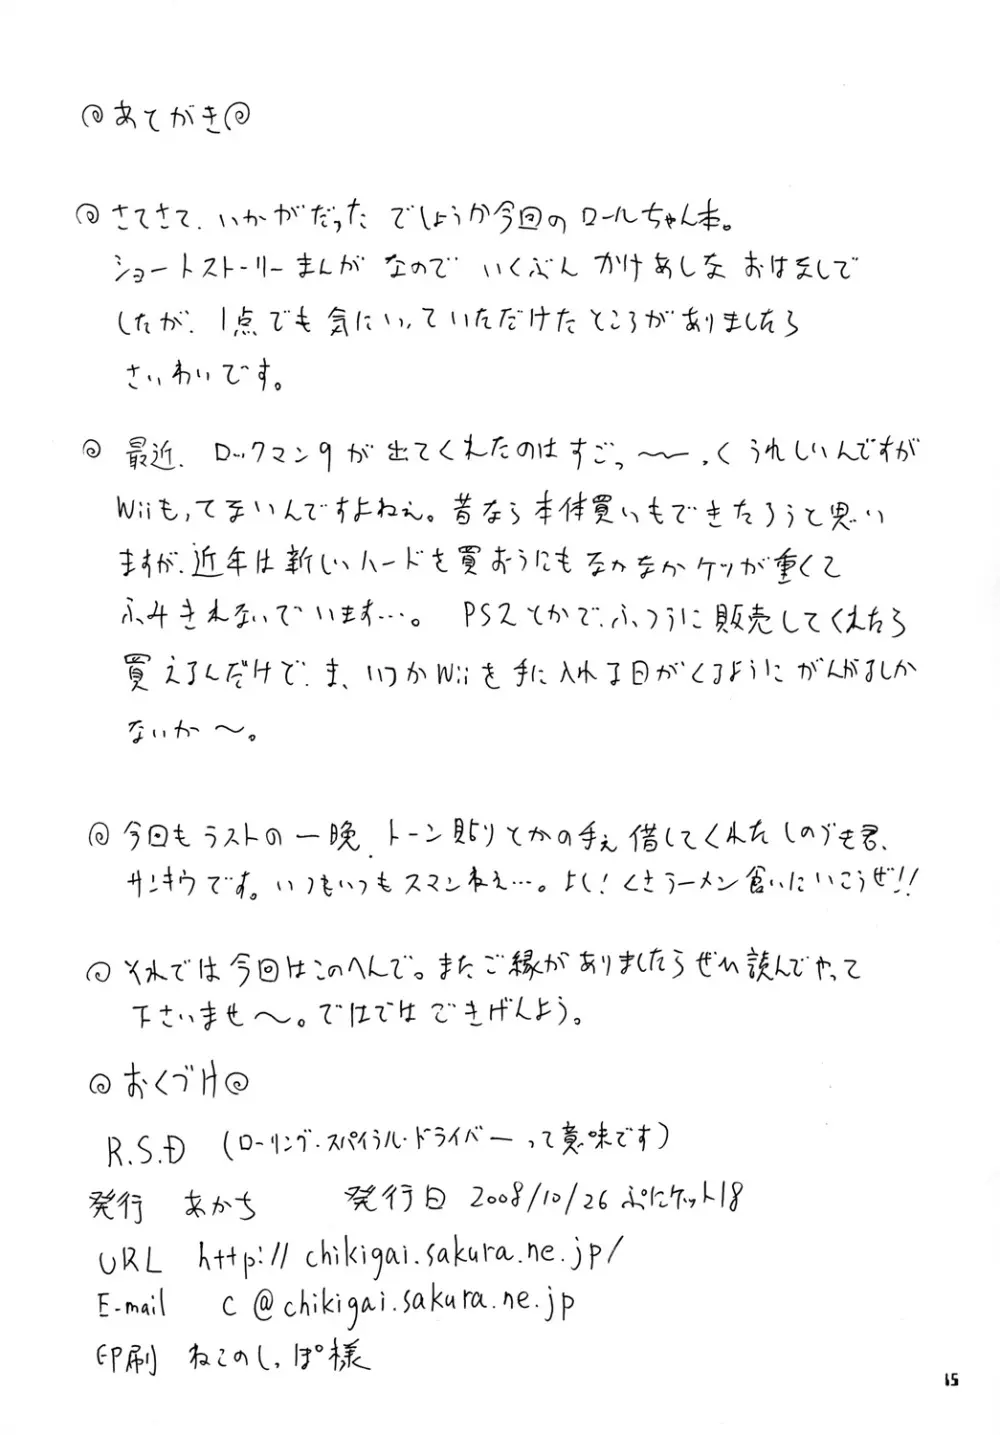 あとがき
さてさて、いかがだったでしょうか今回のロールちゃん本。
ショートストーリーまんがなのでいくぶんかけあしなおはなしで
したが、1点でも気にいっていただけたところがありましたら
さいわいです。
最近、ロックマン9が出てくれたのはすごっ〜〜っくうれしいんですが
Wiiもってないんですよねぇ。昔なら本体買いもできたろうと思い
ますが、近年は新しいハードを買おうにもなかなかケツが重くて
ふみきれないでいます…。 PS2とかで、ふつうに販売してくれたら
買えるんだけどで、ま、いつかWiiを手に入れる日がくるようにがんばるしか
ないか〜。
今回もラストの一晩、トーン貼りとかの手ぇ借してくれたしのづき君、
サンキウです。いつもいつもスマンねぇ…。よし！くさラーメン食いにいこうぜ!!
それでは今回はこのへんで。またご縁がありましたらぜひ読んでやって
下さいませ〜。ではでは ごきげんよう。
おくづけ
R.S.D （ローリング・スパイラル・ドライバーって意味です）
発行 あかち 発行日 2008/10/26 ぷにケット18
URL http://chikigai.sakura.ne.jp/
E-mail c@chikigai.sakura.ne.jp
印刷 ねこのしっぽ様
15